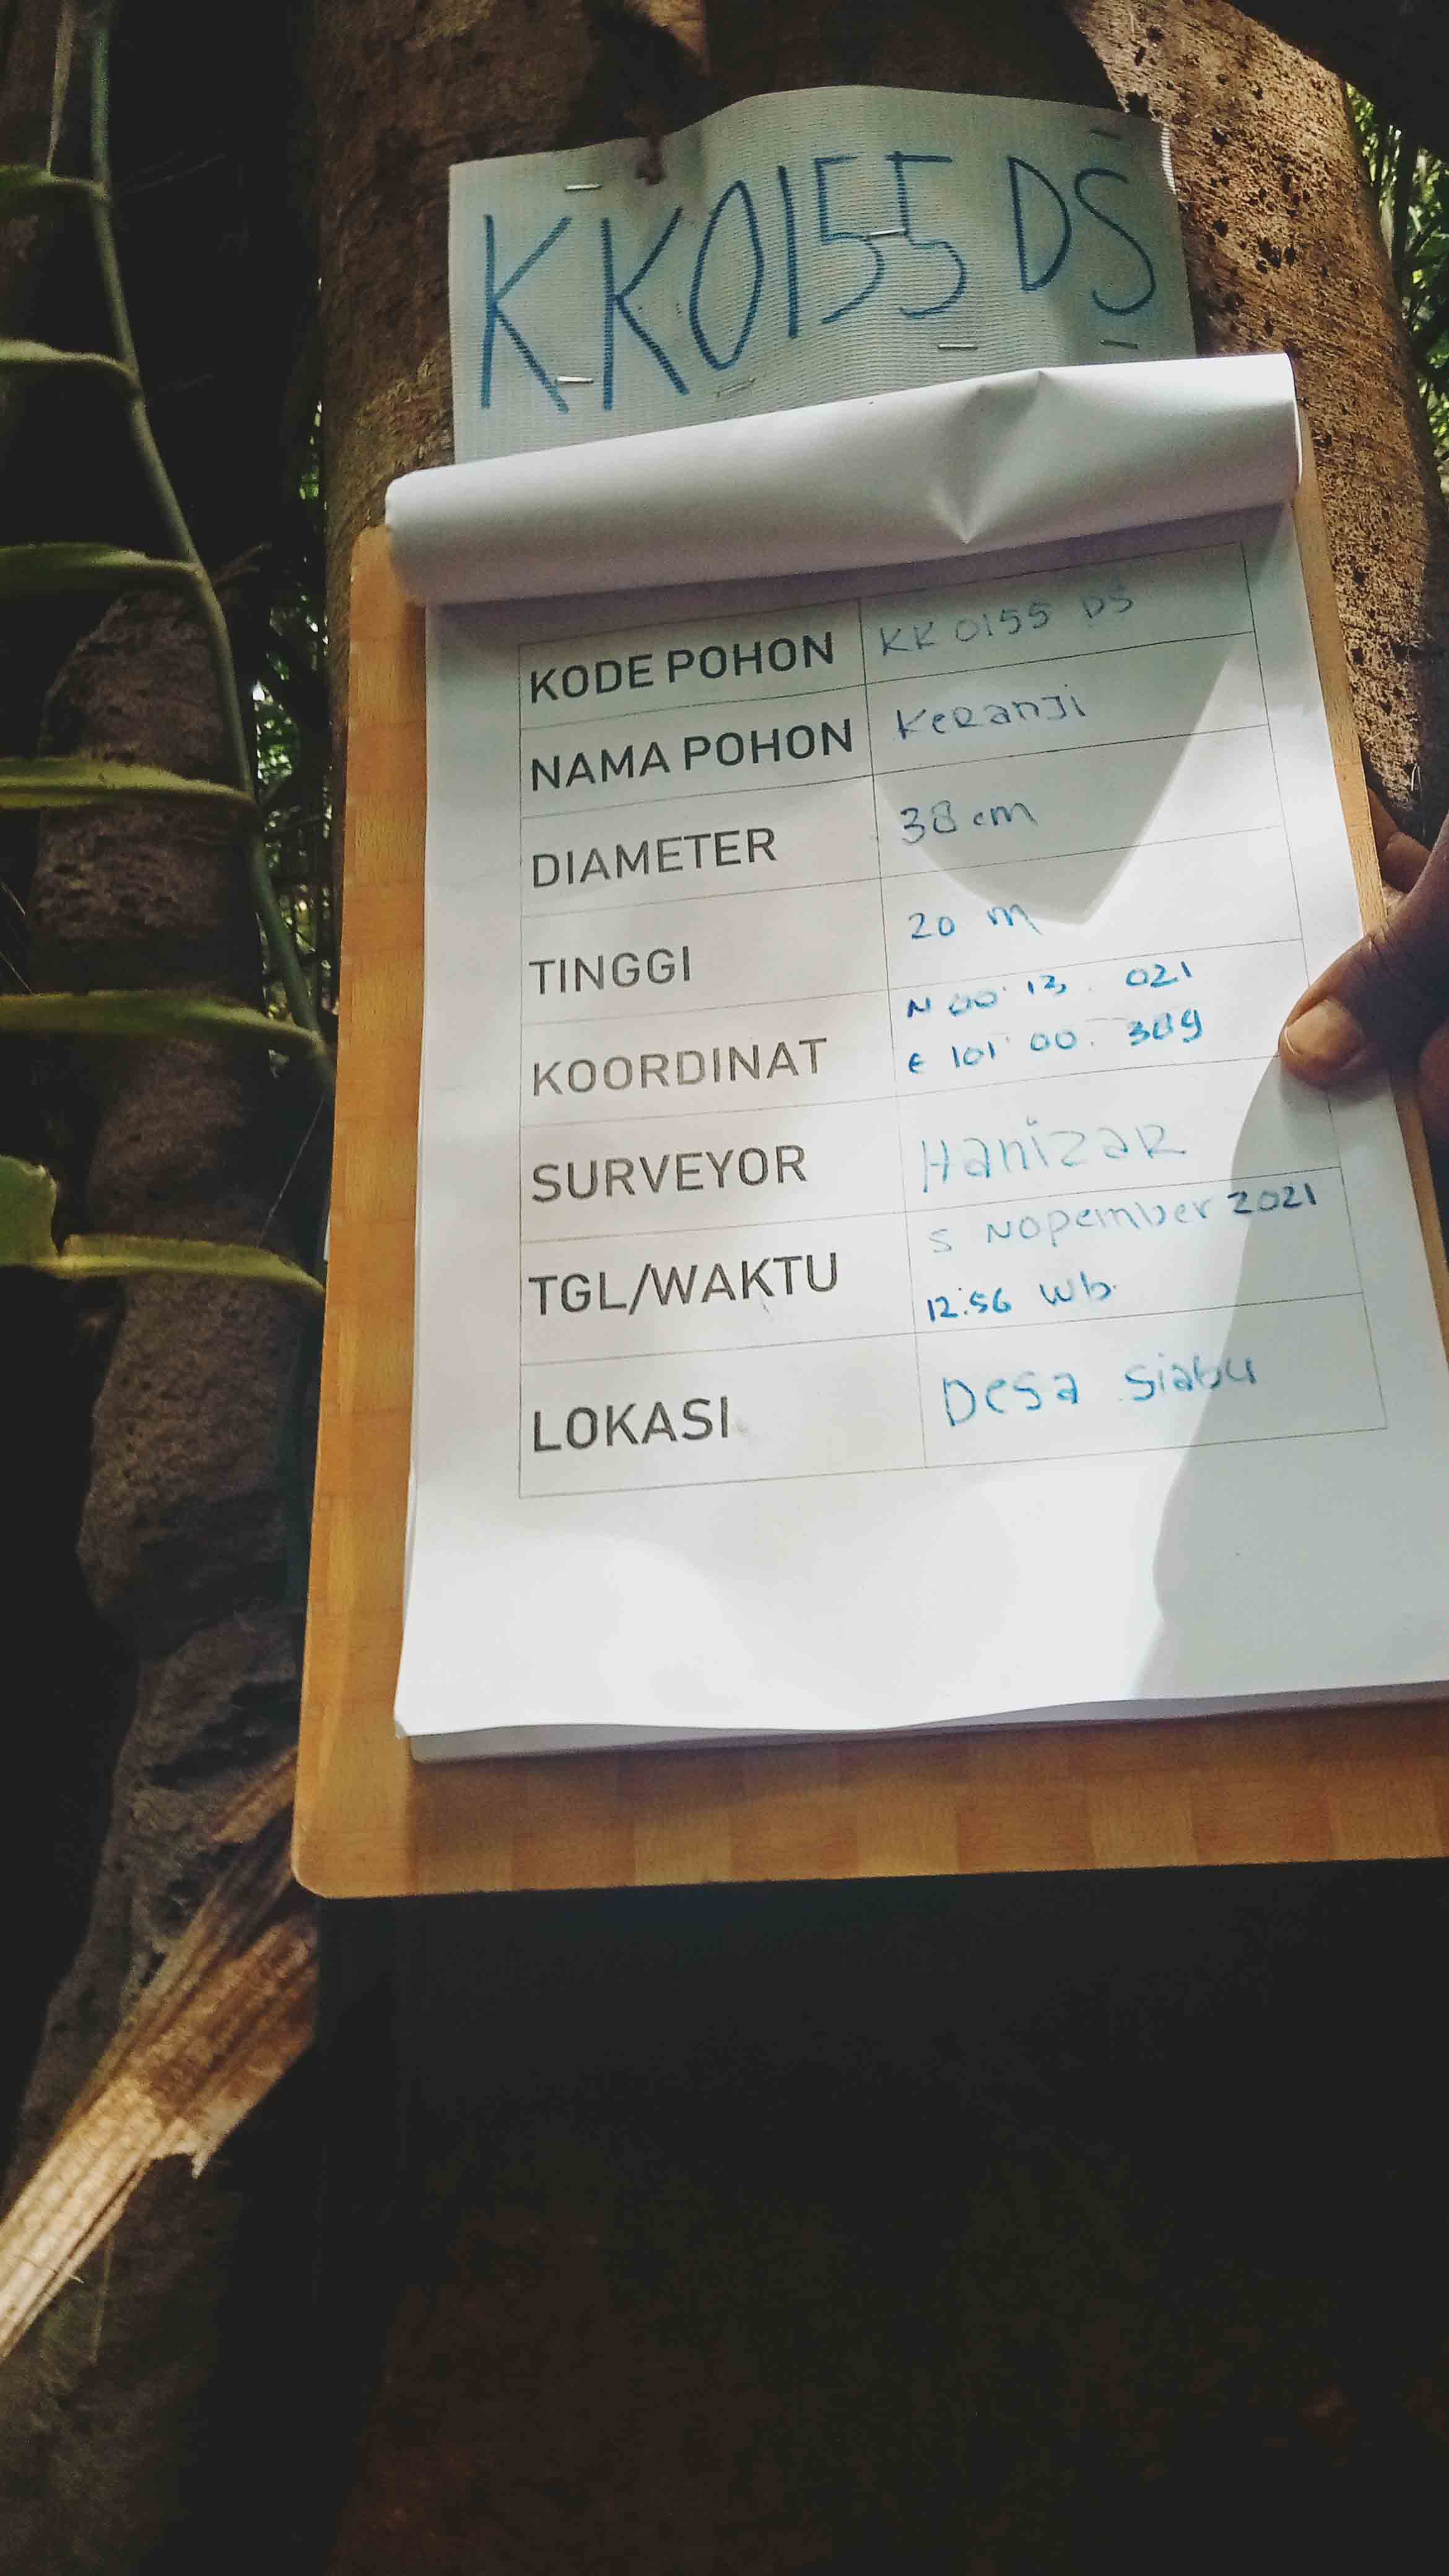 KK0155 DS
KODE POHON KK 0155 DS
NAMA POHON KeRanji
DIAMETER 38 cm
TINGGI 20 m
KOORDINAT N 00° 13. 021
E 101° 00. 389
SURVEYOR HanizaR
TGL/WAKTU 5 Nopember 2021
12:56 Wb.
LOKASI Desa Siabu